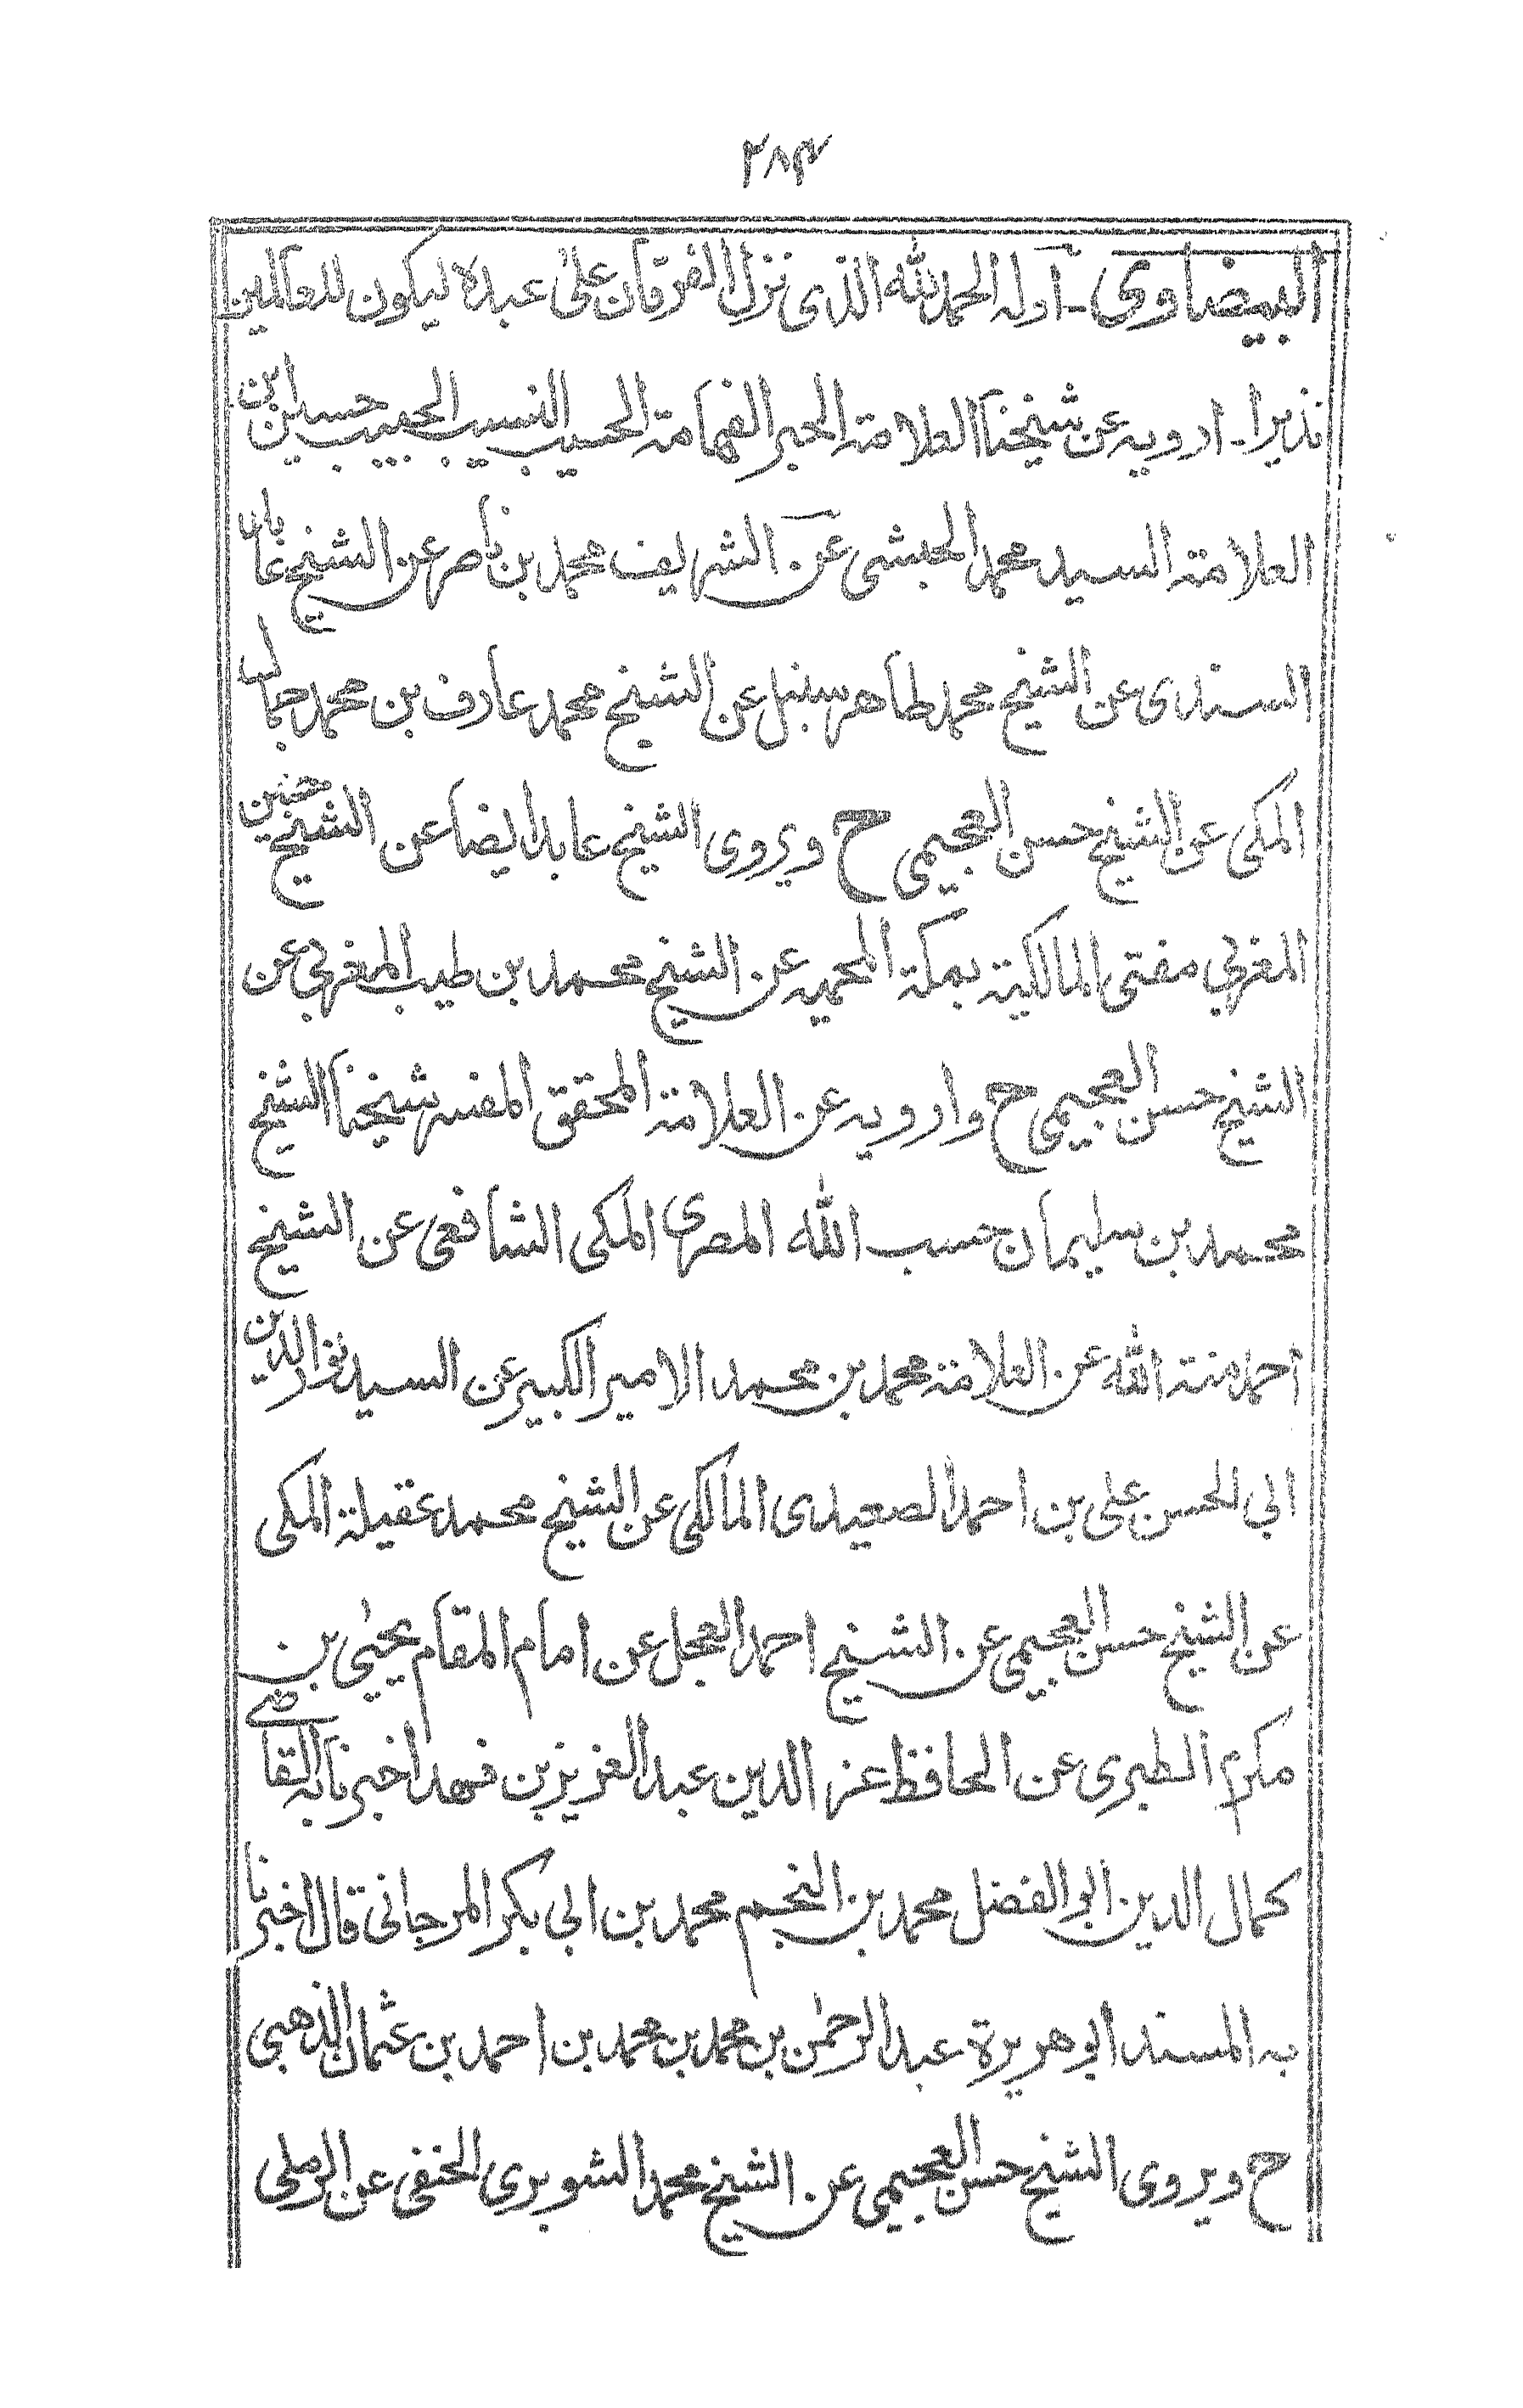 ٢٨٤
البيضاوى - اوله الحمد لله الذى نزل الفرقان على عبده ليكون للعالمين
نذيرا - ارويه عن شيخنا العلامة الحبر الفهامة الحسيب النسيب الحبيب حسين ابن
العلامة السيد محمد الحبشى عن الشريف محمد بن ناصر عن الشيخ عابد
السندى عن الشيخ محمد طاهر سنبل عن الشيخ محمد عارف بن محمد جمال
المكى عن الشيخ حسن العجيمى ح ويروى الشيخ عابد ايضا عن الشيخ حسين
المغربي مفتى المالكية بمكة المحميه عن الشيخ محمد بن طيب المغربي عن
الشيخ حسن العجيمى ح وارويه عن العلامة المحقق المفسر شيخنا الشيخ
محمد بن سليمان حسب الله المصرى المكى الشافعى عن الشيخ
احمد منة الله عن العلامة محمد بن محمد الامير الكبير عن السيد نور الدين
ابي الحسن على بن احمد الصعيدى المالكى عن الشيخ محمد عقيلة المكى
عن الشيخ حسن العجيمى عن الشيخ احمد العجل عن امام المقام يحيى بن
مكرم الطبرى عن الحافظ عز الدين عبد العزيز بن فهد اخبرنا به القاضى
كمال الدين ابو الفضل محمد بن النجم محمد بن ابي بكر المرجانى قال اخبرنا
به المسند ابو هريرة عبد الرحمٰن بن محمد بن محمد بن احمد بن عثمان الذهبى
ح ويروى الشيخ حسن العجيمى عن الشيخ محمد الشوبرى الحنفى عن الرملى